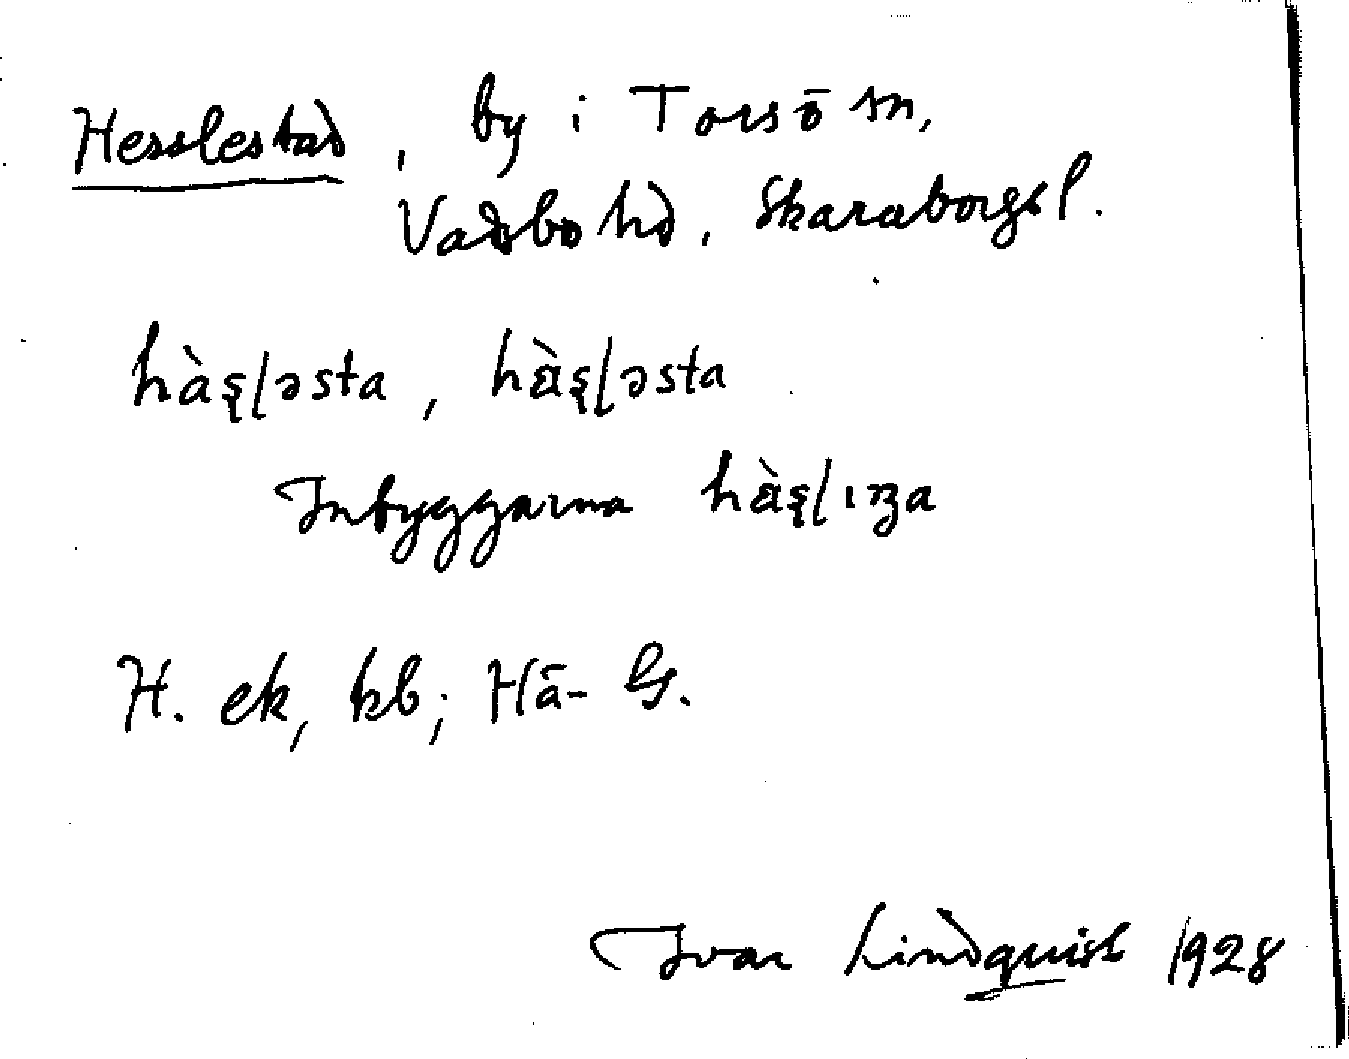 Hesslestad, by i Torsö sn,
Vadsbo hd, Skaraborgs l.
hàʂɭəsta, hàʂɭəsta
Inbyggarna
H. ek, kb; Hä- G.
Ivar Lindquist 1928